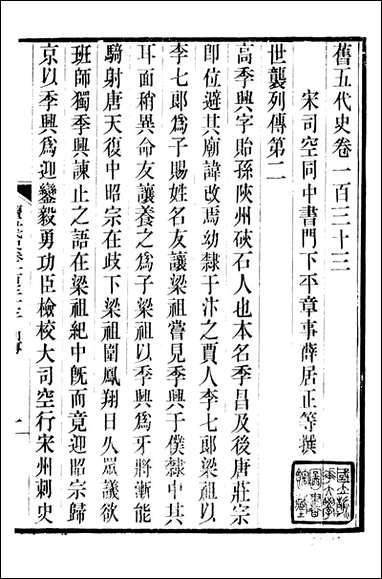 舊五代史卷一百三十三
宋司空同中書門下平章事薛居正等撰
世襲列傳第二
高季興字貽孫陝州硤石人也本名季昌及後唐莊宗
卽位避其廟諱改焉幼隸于汴之賈人李七郎梁祖以
李七郎爲子賜姓名友讓梁祖嘗見季興于僕隸中其
耳面稍異命友讓養之爲子梁祖以季興爲牙將漸能
騎射唐天復中昭宗在歧下梁祖圍鳳翔日久眾議欲
班師獨季興諫止之語在梁祖紀中旣而竟迎昭宗歸
京以季興爲迎鑾毅勇功臣檢校大司空行宋州刺史